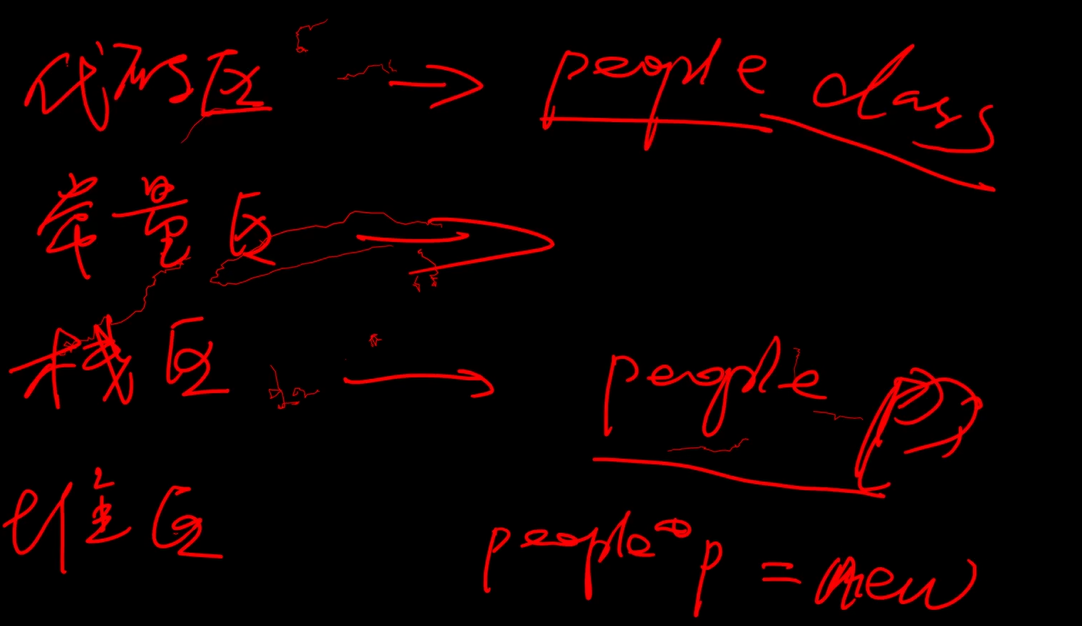 代码区 → people class
常量区 →
栈区 → people p;
堆区
people* p = new